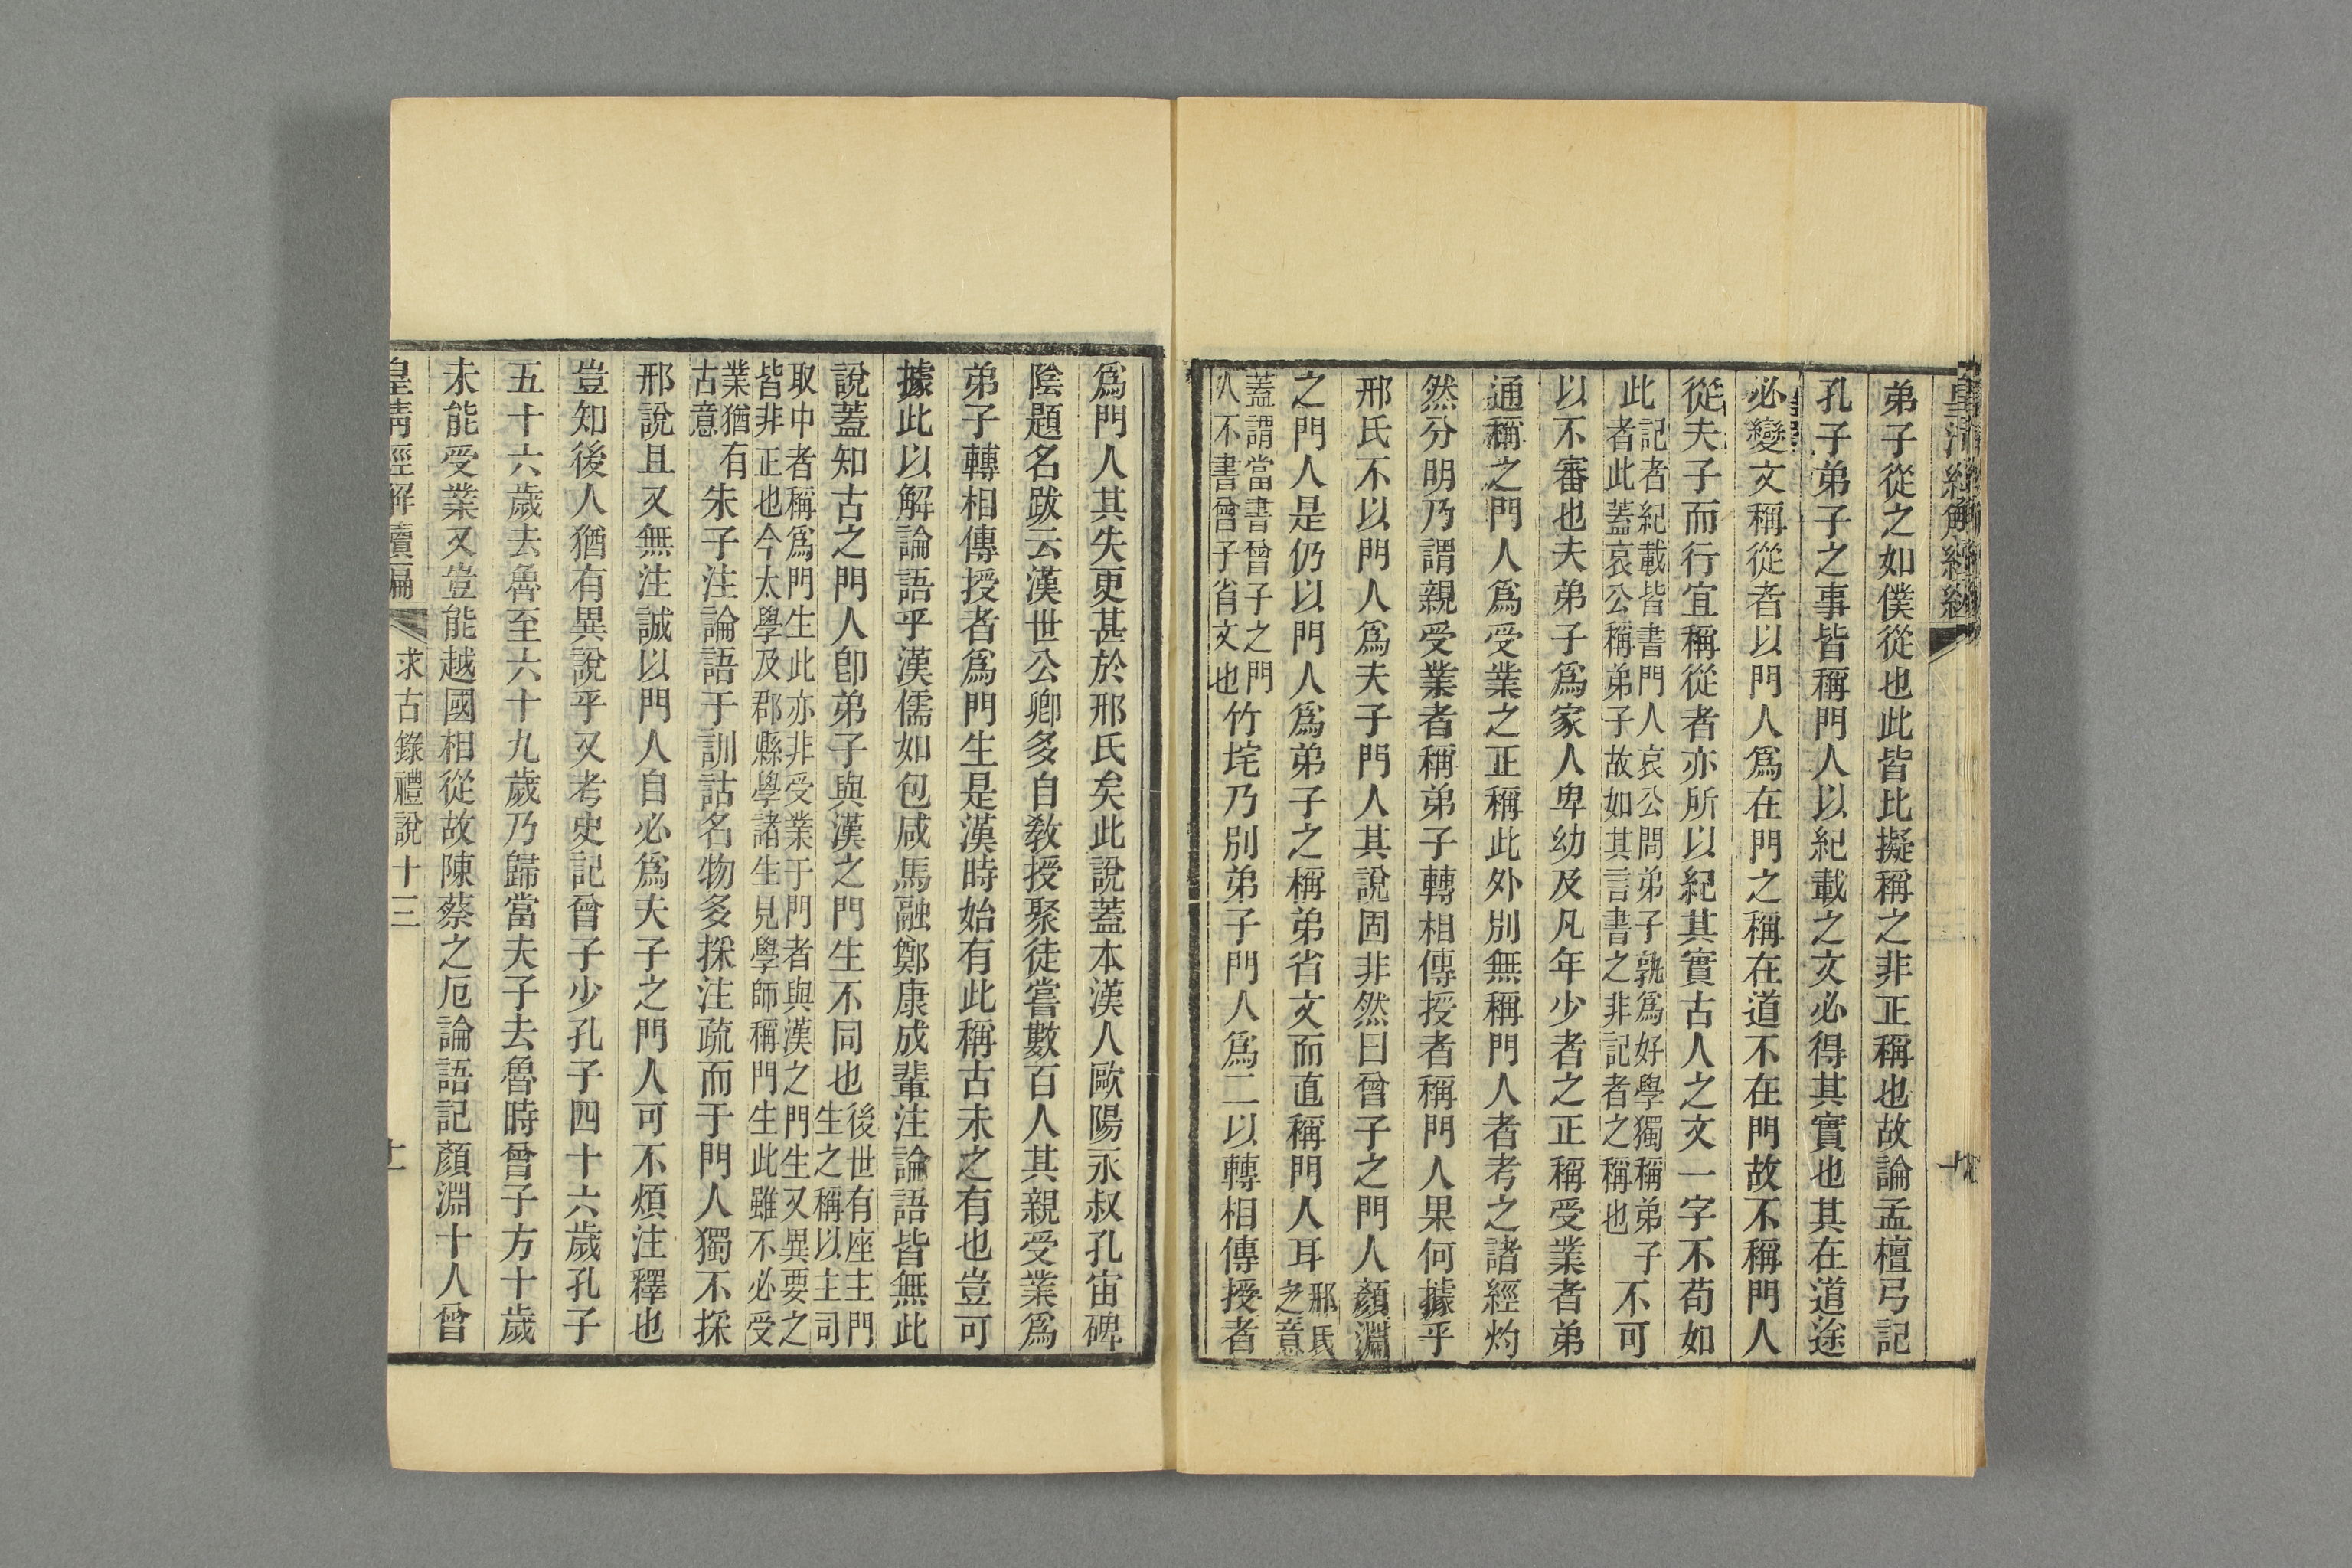 弟子從之如僕從也此皆比擬稱之非正稱也故論孟檀弓記
孔子弟子之事皆稱門人以紀載之文必得其實也其在道途
必變文稱從者以門人爲在門之稱在道不在門故不稱門人
從夫子而行宜稱從者亦所以紀其實古人之文一字不苟如
此記者紀載皆書門人哀公問弟子孰爲好學獨稱弟子
者此蓋哀公稱弟子故如其言書之非記者之稱也不可
以不審也夫弟子爲家人卑幼及凡年少者之正稱受業者弟
通稱之門人爲受業之正稱此外別無稱門人者考之諸經灼
然分明乃謂親受業者稱弟子轉相傳授者稱門人果何據乎
邢氏不以門人爲夫子門人其說固非然曰曾子之門人顏淵
之門人是仍以門人爲弟子之稱弟省文而直稱門人耳邢氏
之意
蓋謂當書曾子之門
人不書曾子省文也竹垞乃別弟子門人爲二以轉相傳授者
爲門人其失更甚於邢氏矣此說蓋本漢人歐陽永叔孔宙碑
陰題名跋云漢世公卿多自敎授聚徒嘗數百人其親受業爲
弟子轉相傳授者爲門生是漢時始有此稱古未之有也豈可
據此以解論語乎漢儒如包咸馬融鄭康成輩注論語皆無此
說蓋知古之門人卽弟子與漢之門生不同也後世有座主門
生之稱以主司
取中者稱爲門生此亦非受業于門者與漢之門生又異要之
皆非正也今太學及郡縣學諸生見學師稱門生此雖不必受
業猶有
古意朱子注論語于訓詁名物多採注疏而于門人獨不採
邢說且又無注誠以門人自必爲夫子之門人可不煩注釋也
豈知後人猶有異說乎又考史記曾子少孔子四十六歲孔子
五十六歲去魯至六十九歲乃歸當夫子去魯時曾子方十歲
未能受業又豈能越國相從故陳蔡之厄論語記顏淵十人曾
皇淸經解續編 求古錄禮說十三